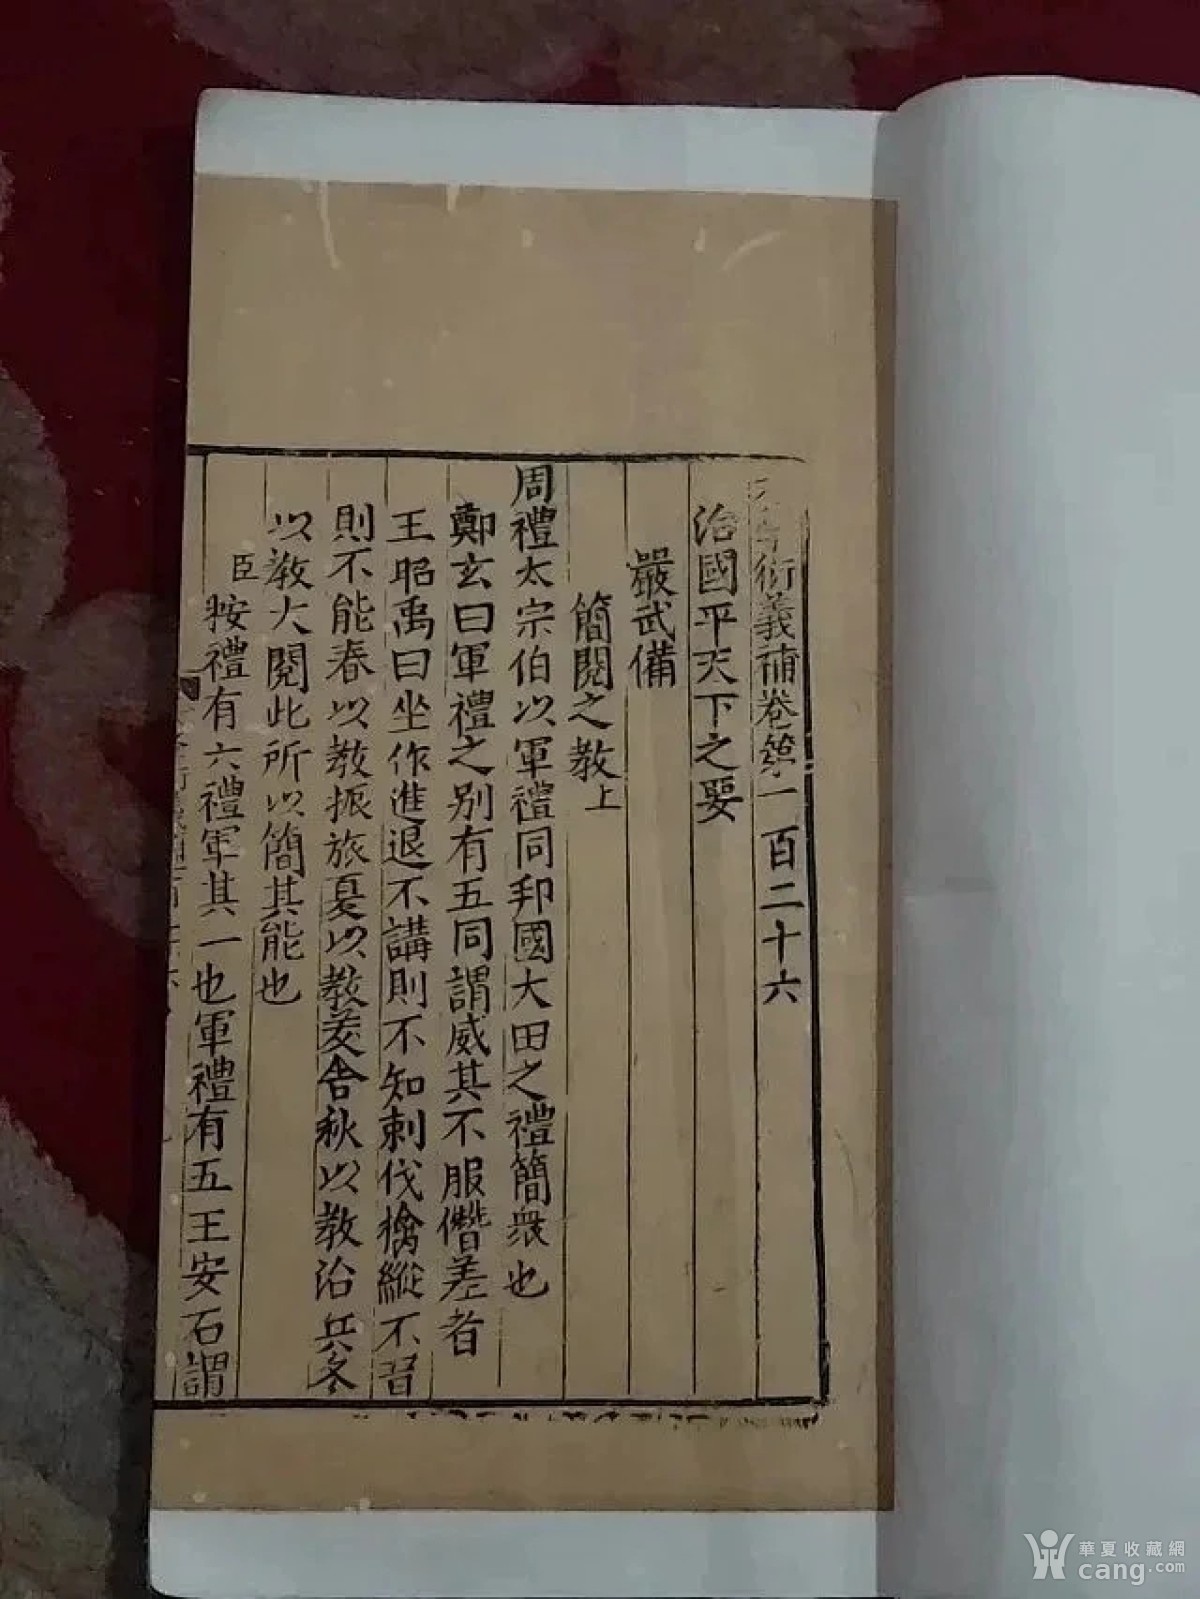 衍義補卷第一百二十六
治國平天下之要
嚴武備
簡閱之教上
周禮太宗伯以軍禮同邦國大田之禮簡衆也
鄭玄曰軍禮之別有五同謂威其不服僭差者
王昭禹曰坐作進退不講則不知刺伐擒縱不習
則不能春以教振旅夏以教茇舍秋以教治兵冬
以教大閱此所以簡其能也
臣按禮有六禮軍其一也軍禮有五王安石謂
華夏收藏網
cang.com